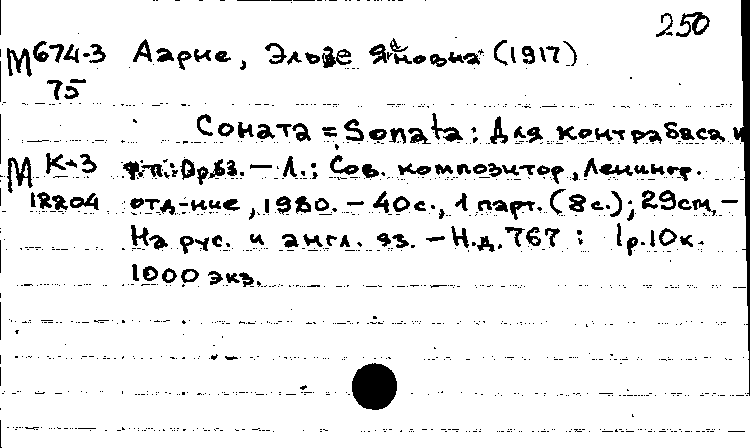 250
М674-3 Аарне, Эльзе Яновна (1917)
75
Соната = Sonata: Для контрабаса и
М К-3 ф.-п.: Ор.63. — Л.: Сов. композитор, Ленингр.
12204 отд-ние, 1980. — 40с., 1 парт. (8с.); 29см. —
На рус. и англ. яз. — Н.д. 767 : 1р.10к.
1000 экз.